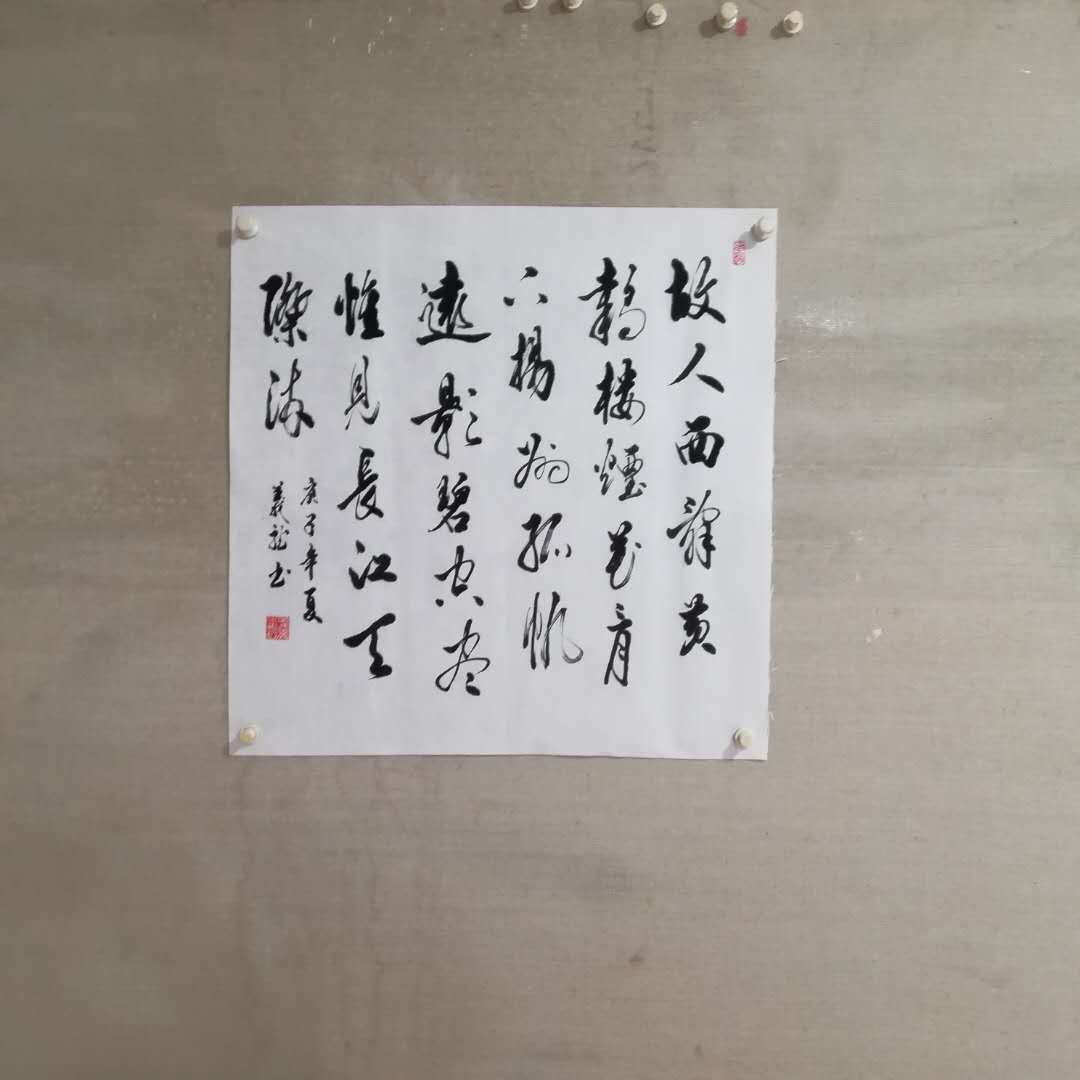 故人西辭黄
鶴楼煙花三月
下揚州孤帆
遠影碧空尽
惟見長江天
際流
庚子年夏
義龍书